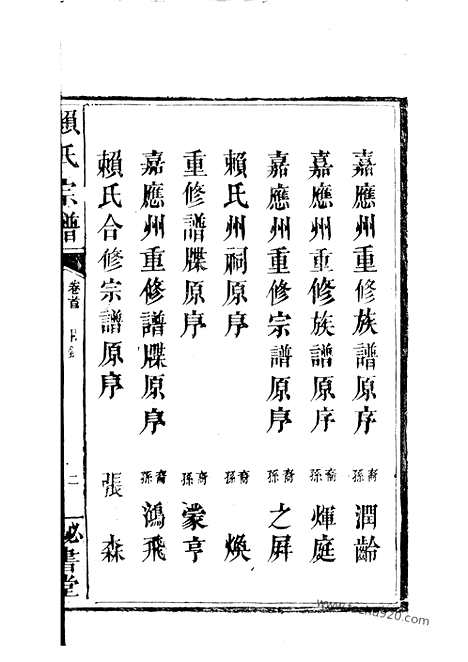 嘉應州重修族譜原序 裔孫 潤齡
嘉應州重修族譜原序 裔孫 煇庭
嘉應州重修宗譜原序 裔孫 之屛
賴氏州祠原序 裔孫 煥
重修譜牒原序 裔孫 蒙亨
嘉應州重修譜牒原序 裔孫 鴻飛
賴氏合修宗譜原序 張森
賴氏宗譜 卷首 目錄 二 秘書堂